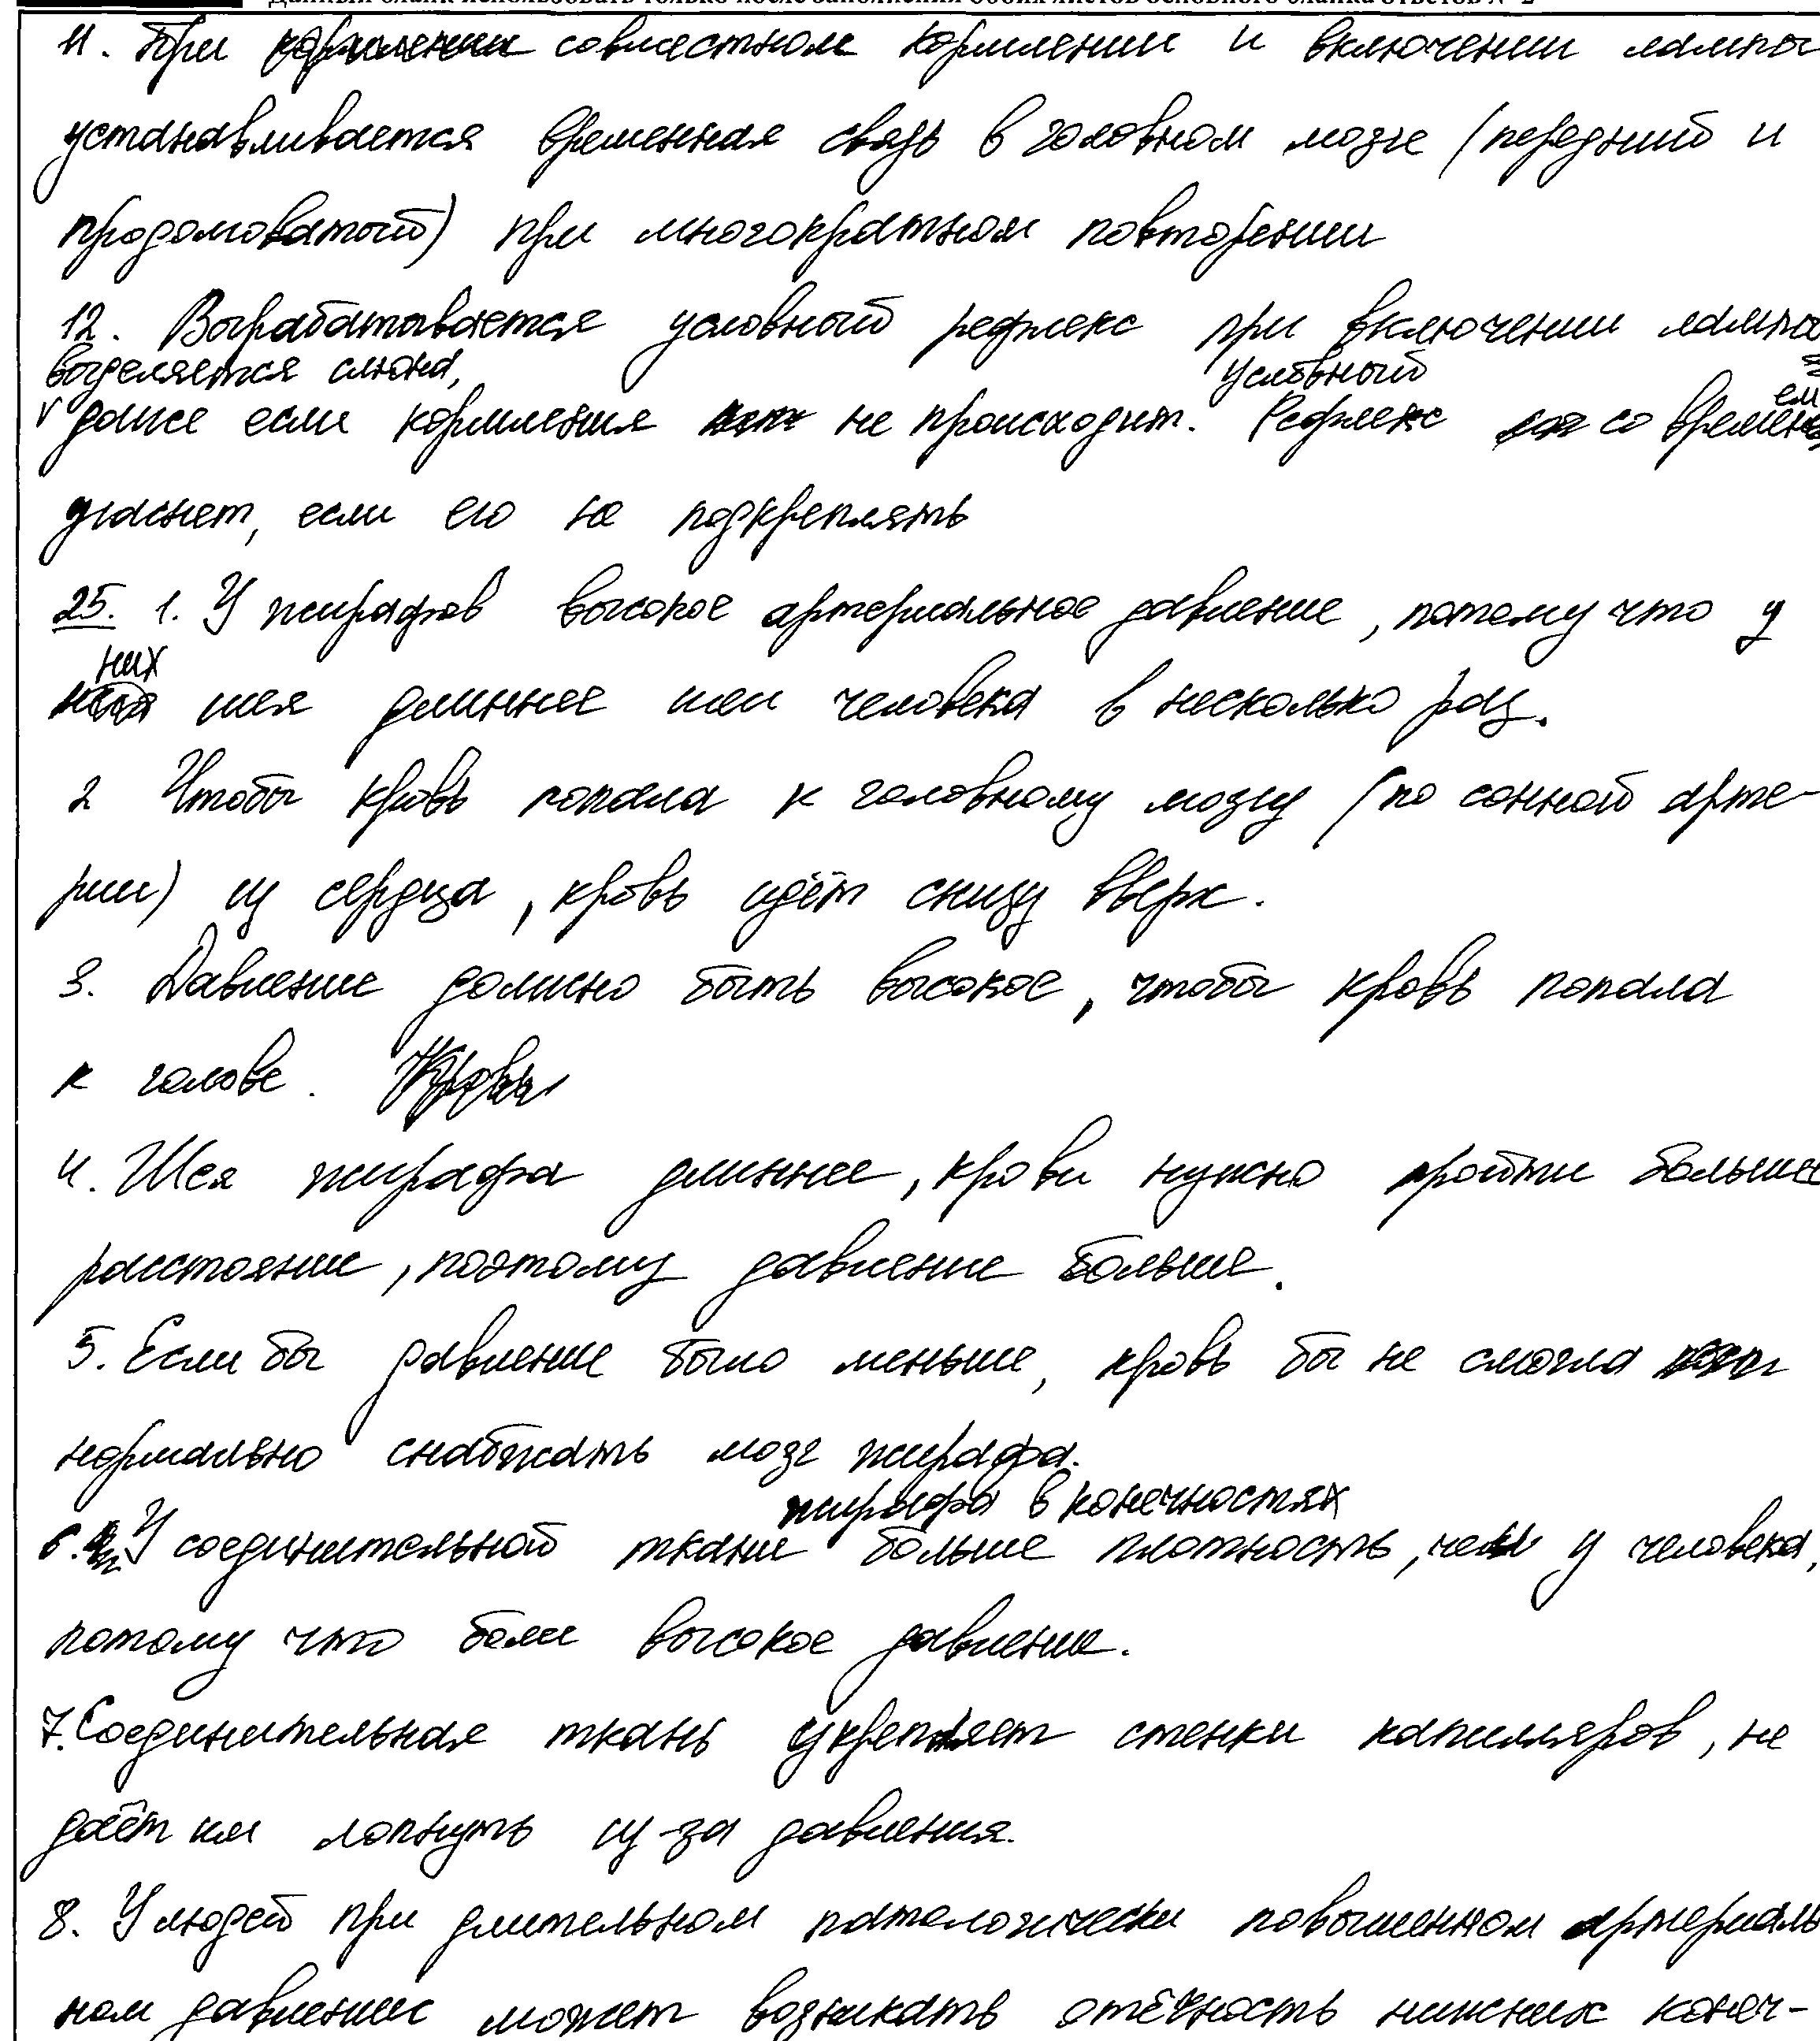 Данный бланк использовать только после заполнения обоих листов основного бланка ответов № 2
11. При совместном кормлении и включении лампы
устанавливается временная связь в головном мозге (передний и
продолговатый) при многократном повторении
12. Вырабатывается условный рефлекс при включении лампы
выделяется слюна, условный
V даже если кормления не происходит. Рефлекс со временем
угаснет, если его не подкреплять
25. 1. У жирафов высокое артериальное давление, потому что у
них
шея длиннее шеи человека в несколько раз.
2 Чтобы кровь попала к головному мозгу (по сонной арте-
рии) из сердца, кровь идёт снизу вверх.
3. Давление должно быть высокое, чтобы кровь попала
к голове.
4. Шея жирафа длиннее, крови нужно пройти больше
расстояние, поэтому давление больше.
5. Если бы давление было меньше, кровь бы не смогла
нормально снабжать мозг жирафа.
жирафа в конечностях
6. У соединительной ткани больше плотность, чем у человека,
потому что более высокое давление.
7. Соединительная ткань укрепляет стенки капилляров, не
даёт им лопнуть из-за давления.
8. У людей при длительном патологически повышенном артериаль
ном давлении может возникать отёчность нижних конеч-